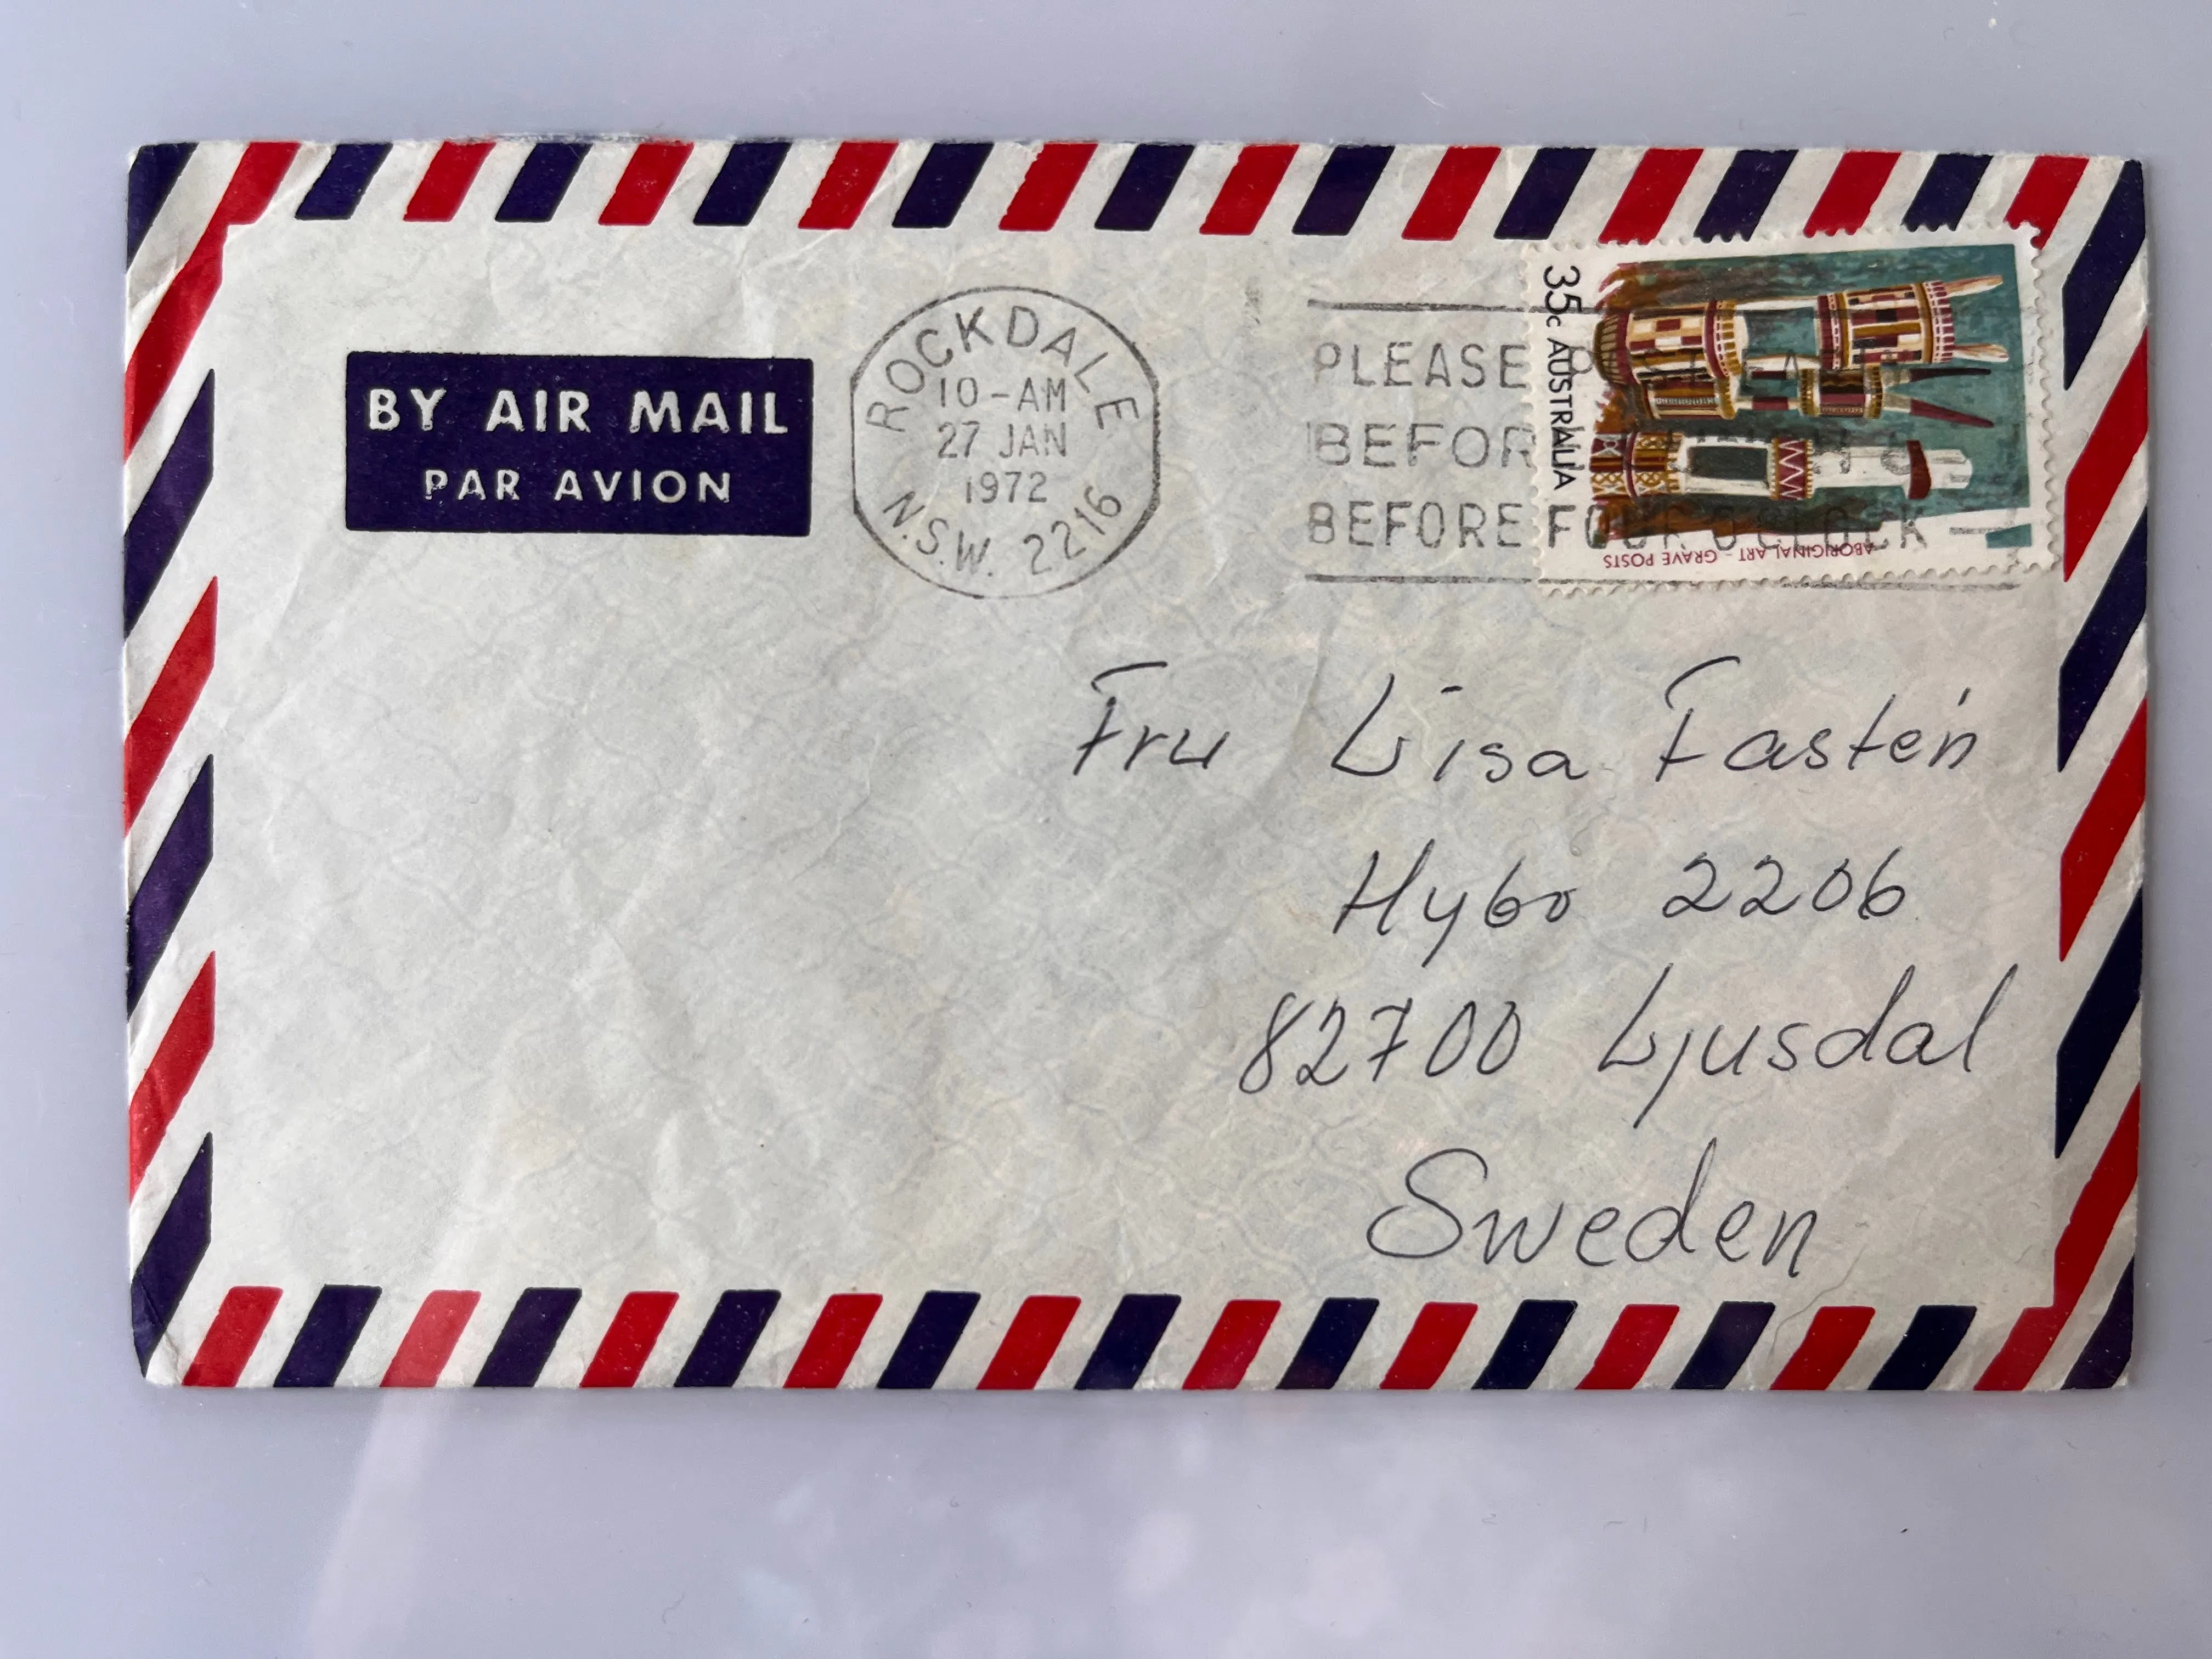 BY AIR MAIL
PAR AVION
ROCKDALE
10-AM
27 JAN
1972
N.S.W. 2216
PLEASE
BEFORE
BEFORE FOUR O'CLOCK
35c AUSTRALIA
ABORIGINAL ART - GRAVE POSTS
Fru Lisa Fastén
Hybo 2206
82700 Ljusdal
Sweden